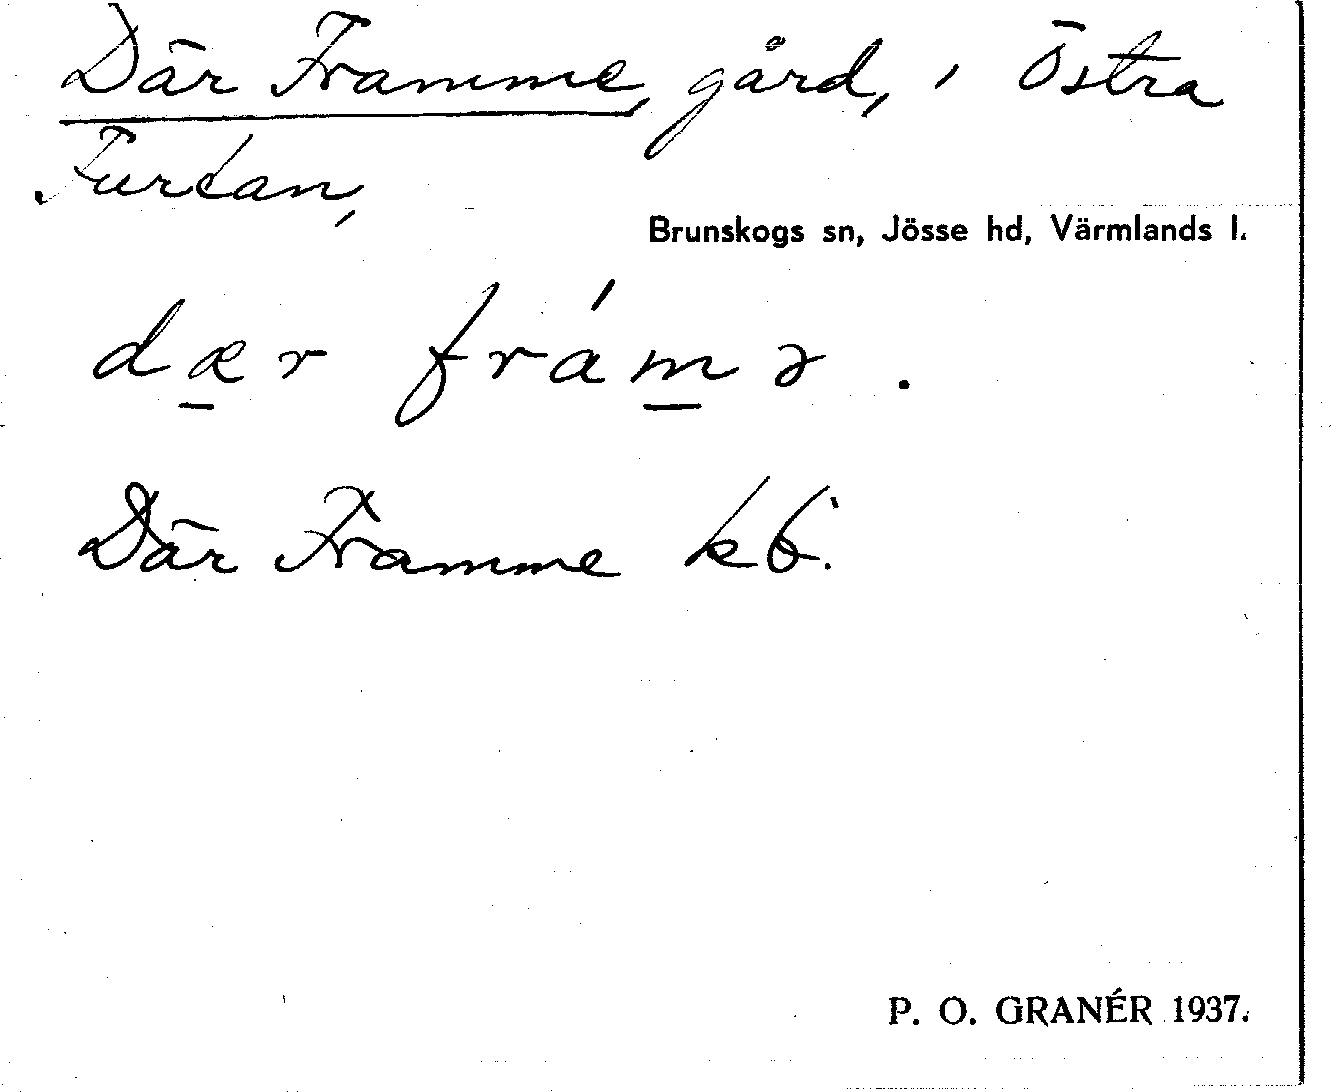 Där Framme, gård, i Östra
Furtan,
Brunskogs sn, Jösse hd, Värmlands l.
dær frámə.
Där Framme kb.
P. O. GRANÉR 1937.